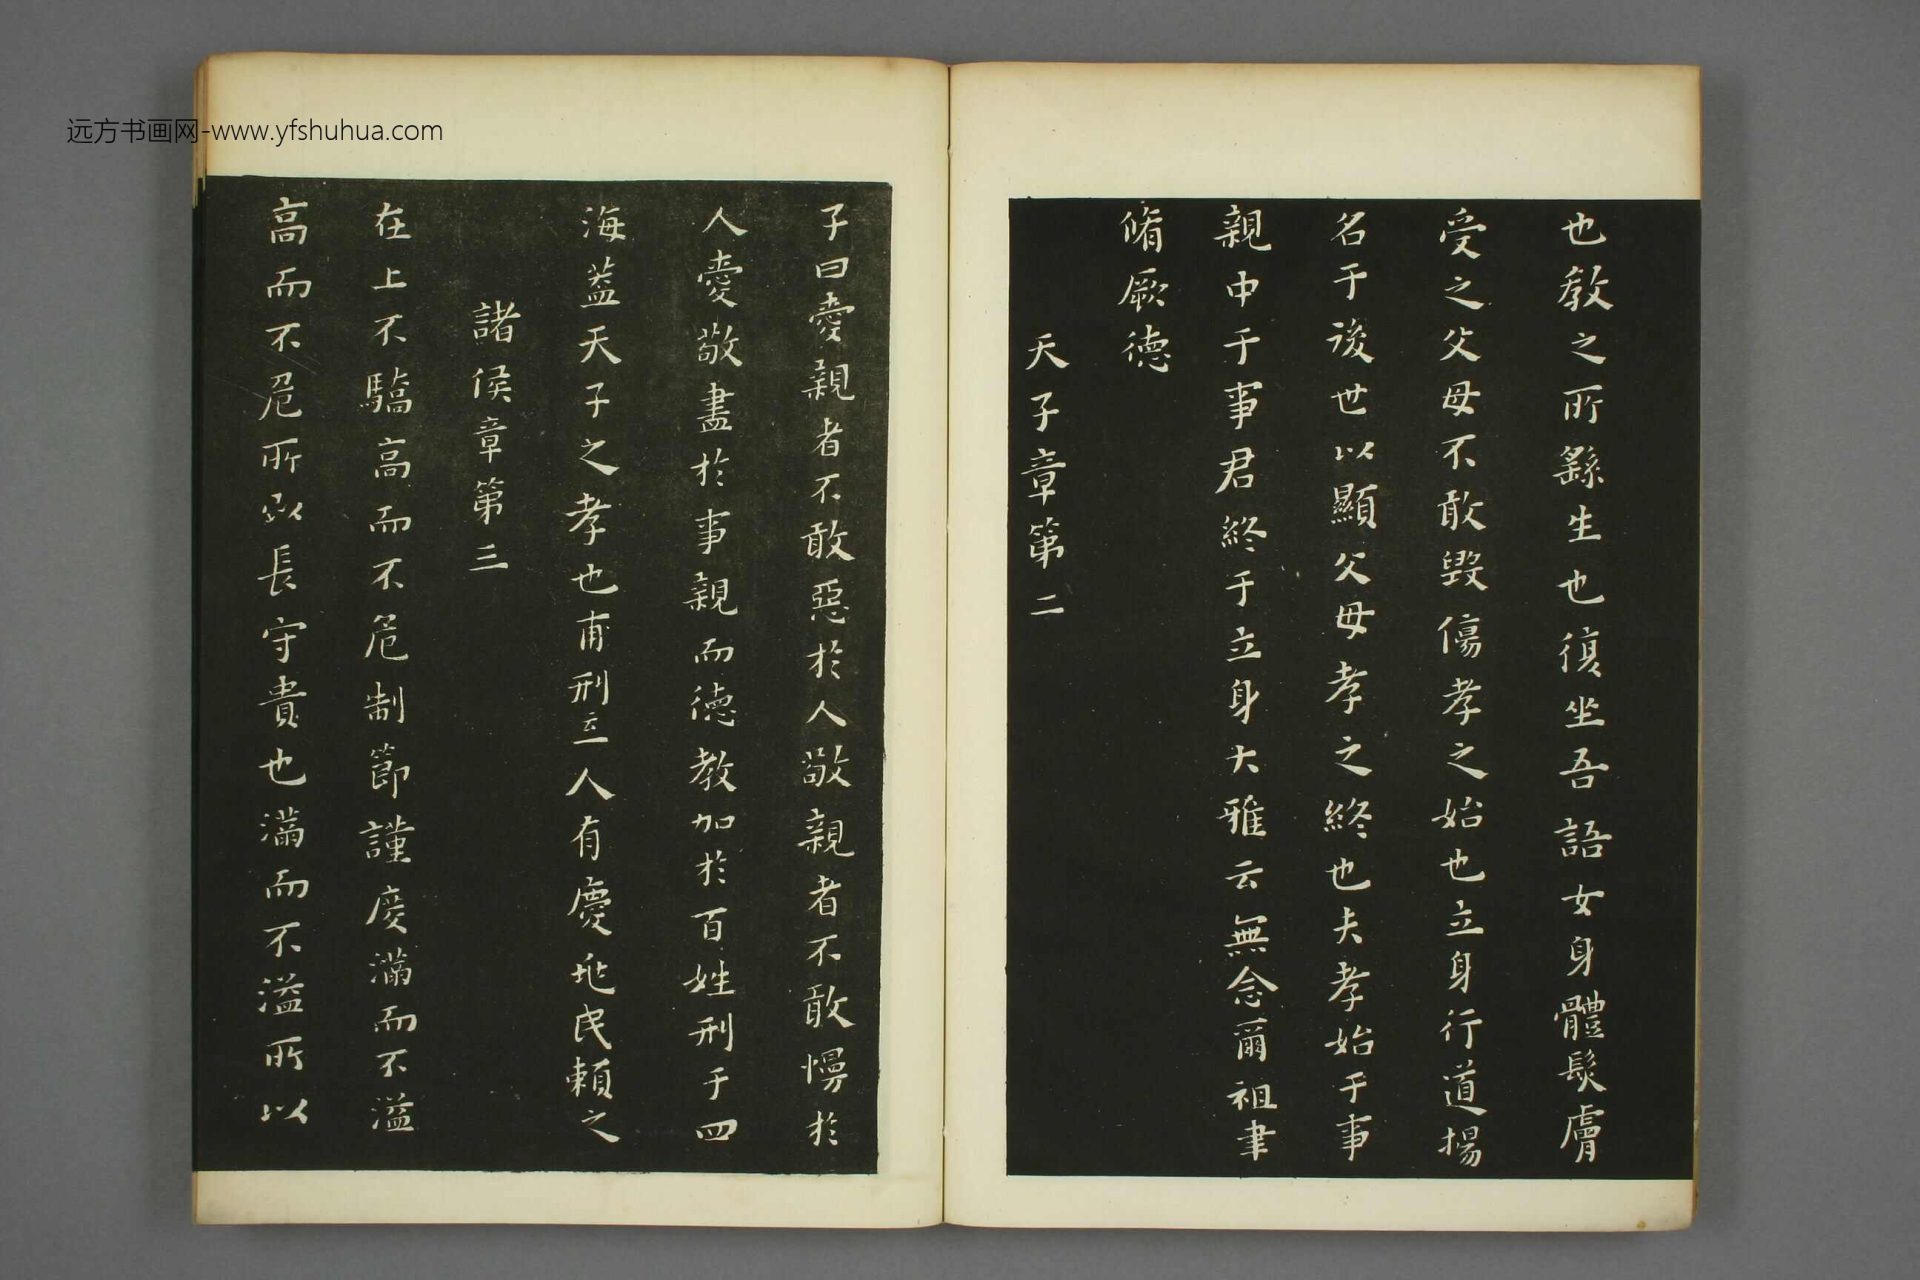 远方书画网-www.yfshuhua.com
也教之所繇生也復坐吾語女身體髮膚
受之父母不敢毀傷孝之始也立身行道揚
名于後世以顯父母孝之終也夫孝始于事
親中于事君終于立身大雅云無念爾祖聿
脩厥德
天子章第二
子曰愛親者不敢惡於人敬親者不敢慢於
人愛敬盡於事親而德教加於百姓刑于四
海蓋天子之孝也甫刑云一人有慶兆民賴之
諸侯章第三
在上不驕高而不危制節謹度滿而不溢
高而不危所以長守貴也滿而不溢所以